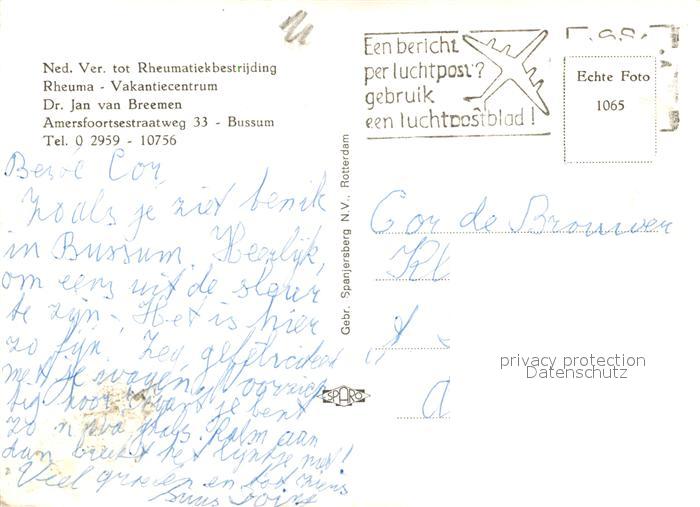 Ned. Ver. tot Rheumatiekbestrijding
Rheuma - Vakantiecentrum
Dr. Jan van Breemen
Amersfoortsestraatweg 33 - Bussum
Tel. 0 2959 - 10756
Een bericht
per luchtpost?
gebruik
een luchtpostblad!
Echte Foto
1065
Gebr. Spanjersberg N.V., Rotterdam
SPARO
Beste Cor,
Zoals je ziet ben ik
in Bussum. Heerlijk,
om eens uit de sleur
te zijn. Het is hier
zo fijn. Zeg
met je wagen,
want je bent
zo'n Kalm aan
dan breekt het lijntje niet!
Veel groeten en tot ziens
Cor de Brouwer
Kl
A
privacy protection
Datenschutz